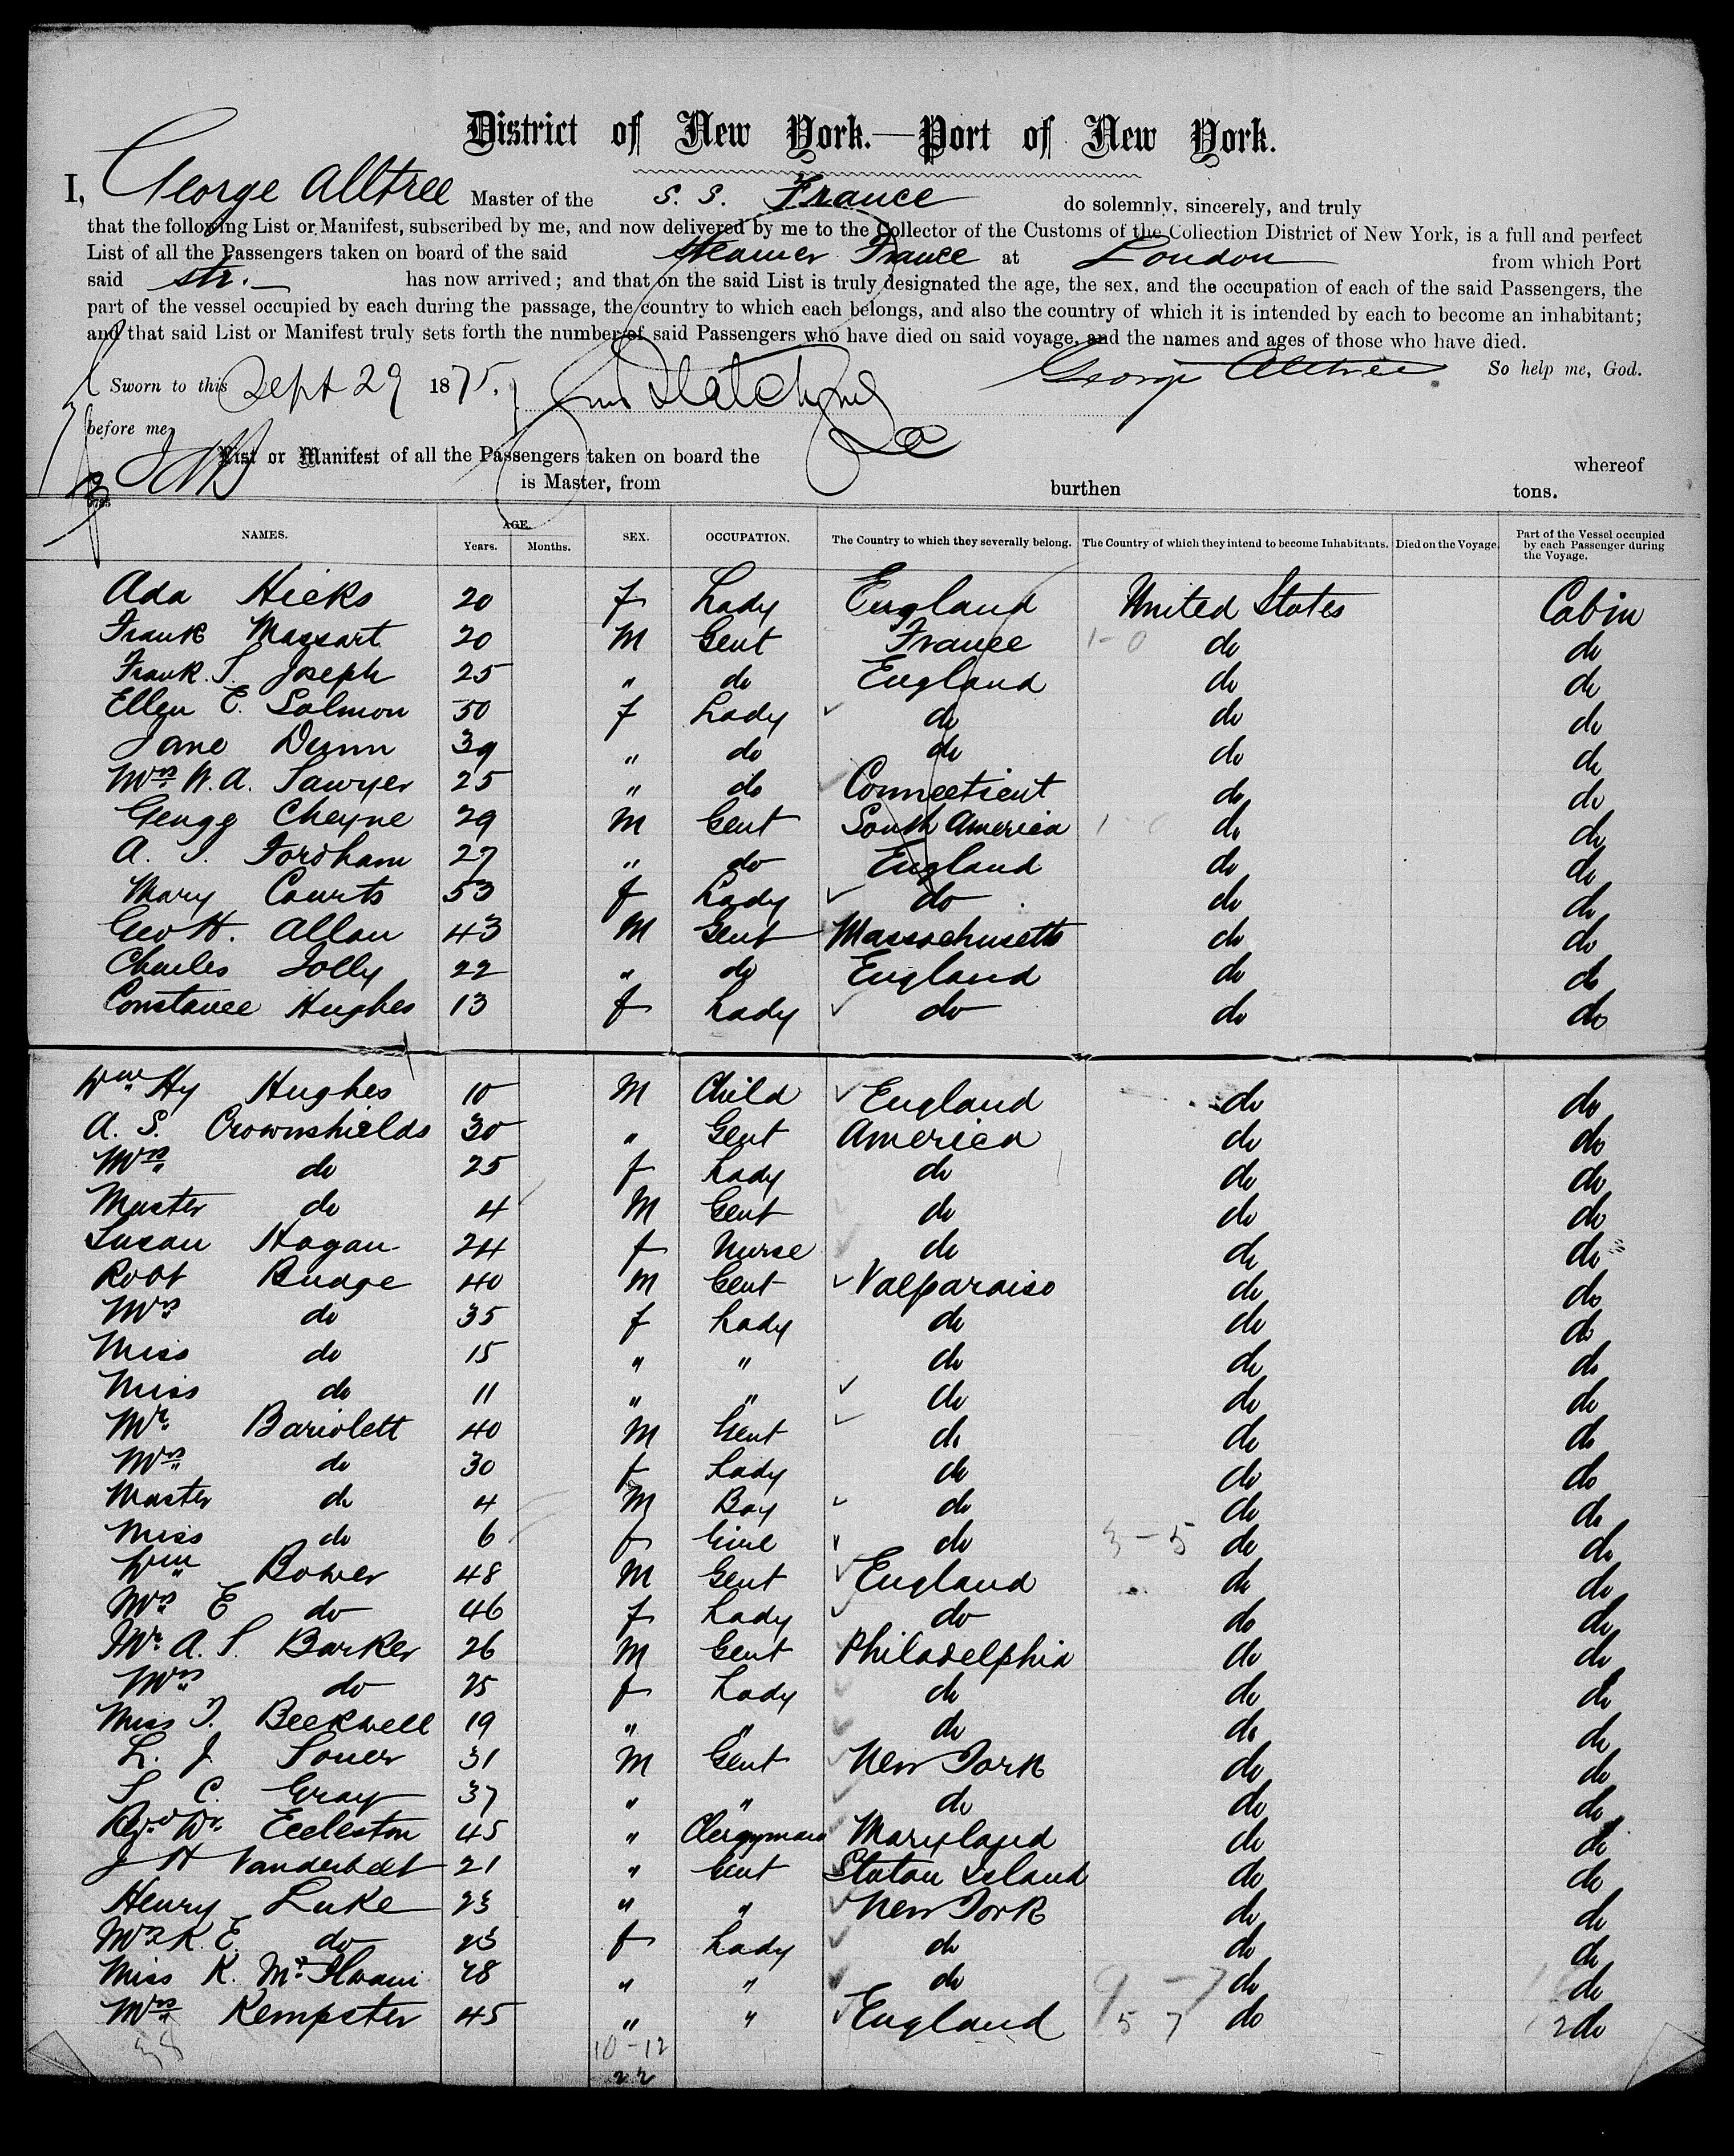 District of New York.—Port of New York.
I, George Alltree Master of the S. S. France do solemnly, sincerely, and truly
that the following List or Manifest, subscribed by me, and now delivered by me to the Collector of the Customs of the Collection District of New York, is a full and perfect
List of all the Passengers taken on board of the said Steamer France at London from which Port
said str. has now arrived; and that on the said List is truly designated the age, the sex, and the occupation of each of the said Passengers, the
part of the vessel occupied by each during the passage, the country to which each belongs, and also the country of which it is intended by each to become an inhabitant;
and that said List or Manifest truly sets forth the number of said Passengers who have died on said voyage, and the names and ages of those who have died.
Sworn to this Sept 29 1875. George Alltree So help me, God.
before me
List or Manifest of all the Passengers taken on board the whereof
is Master, from burthen tons.
NAMES. AGE. Years. Months. SEX. OCCUPATION. The Country to which they severally belong. The Country of which they intend to become Inhabitants. Died on the Voyage. Part of the Vessel occupied by each Passenger during the Voyage.
Ada Hicks 20 f Lady England United States Cabin
Frank Massart 20 M Gent France 1-0 do do
Frank S. Joseph 25 " do England do do
Ellen E. Salmon 50 f Lady do do do
Jane Dunn 39 " do do do do
Mrs W. A. Sawyer 25 " do Connecticut do do
Cheyne 29 M Gent South America do do
A. Fordham 27 " do England do do
Mary Courts 53 f Lady do do do
Geo H. Allan 43 M Gent Massachusetts do do
Charles Jolly 22 " do England do do
Constance Hughes 13 f Lady do do do
Wm Hy Hughes 10 M Child England do do
A. S. Crownshields 30 " Gent America do do
Mrs do 25 f Lady do do do
Master do 4 M Gent do do do
Susan Hogan 24 f Nurse do do do
Robt Budge 40 M Gent Valparaiso do do
Mrs do 35 f Lady do do do
Miss do 15 " " do do do
Miss do 11 " " do do do
Mr Bariolett 40 M Gent do do do
Mrs do 30 f Lady do do do
Master do 4 M Boy do do do
Miss do 6 f Girl do 3-5 do do
Wm Bower 48 M Gent England do do
Mrs E do 46 f Lady do do do
Mr. A. S. Barker 26 M Gent Philadelphia do do
Mrs do 25 f Lady do do do
Miss T. Beekwell 19 " " do do do
L. J. Souer 31 M Gent New York do do
S C. Gray 37 " " do do do
Revd Dr. Eccleston 45 " Clergyman Maryland do do
J H Vanderbelt 21 " Gent Staton Island do do
Henry Luke 23 " " New York do do
Mrs K. E. do 23 f Lady do do do
Miss K. 48 " " do 9-7 do do
Mrs Kempster 45 " " England 5 7 do do
38 10-12
22